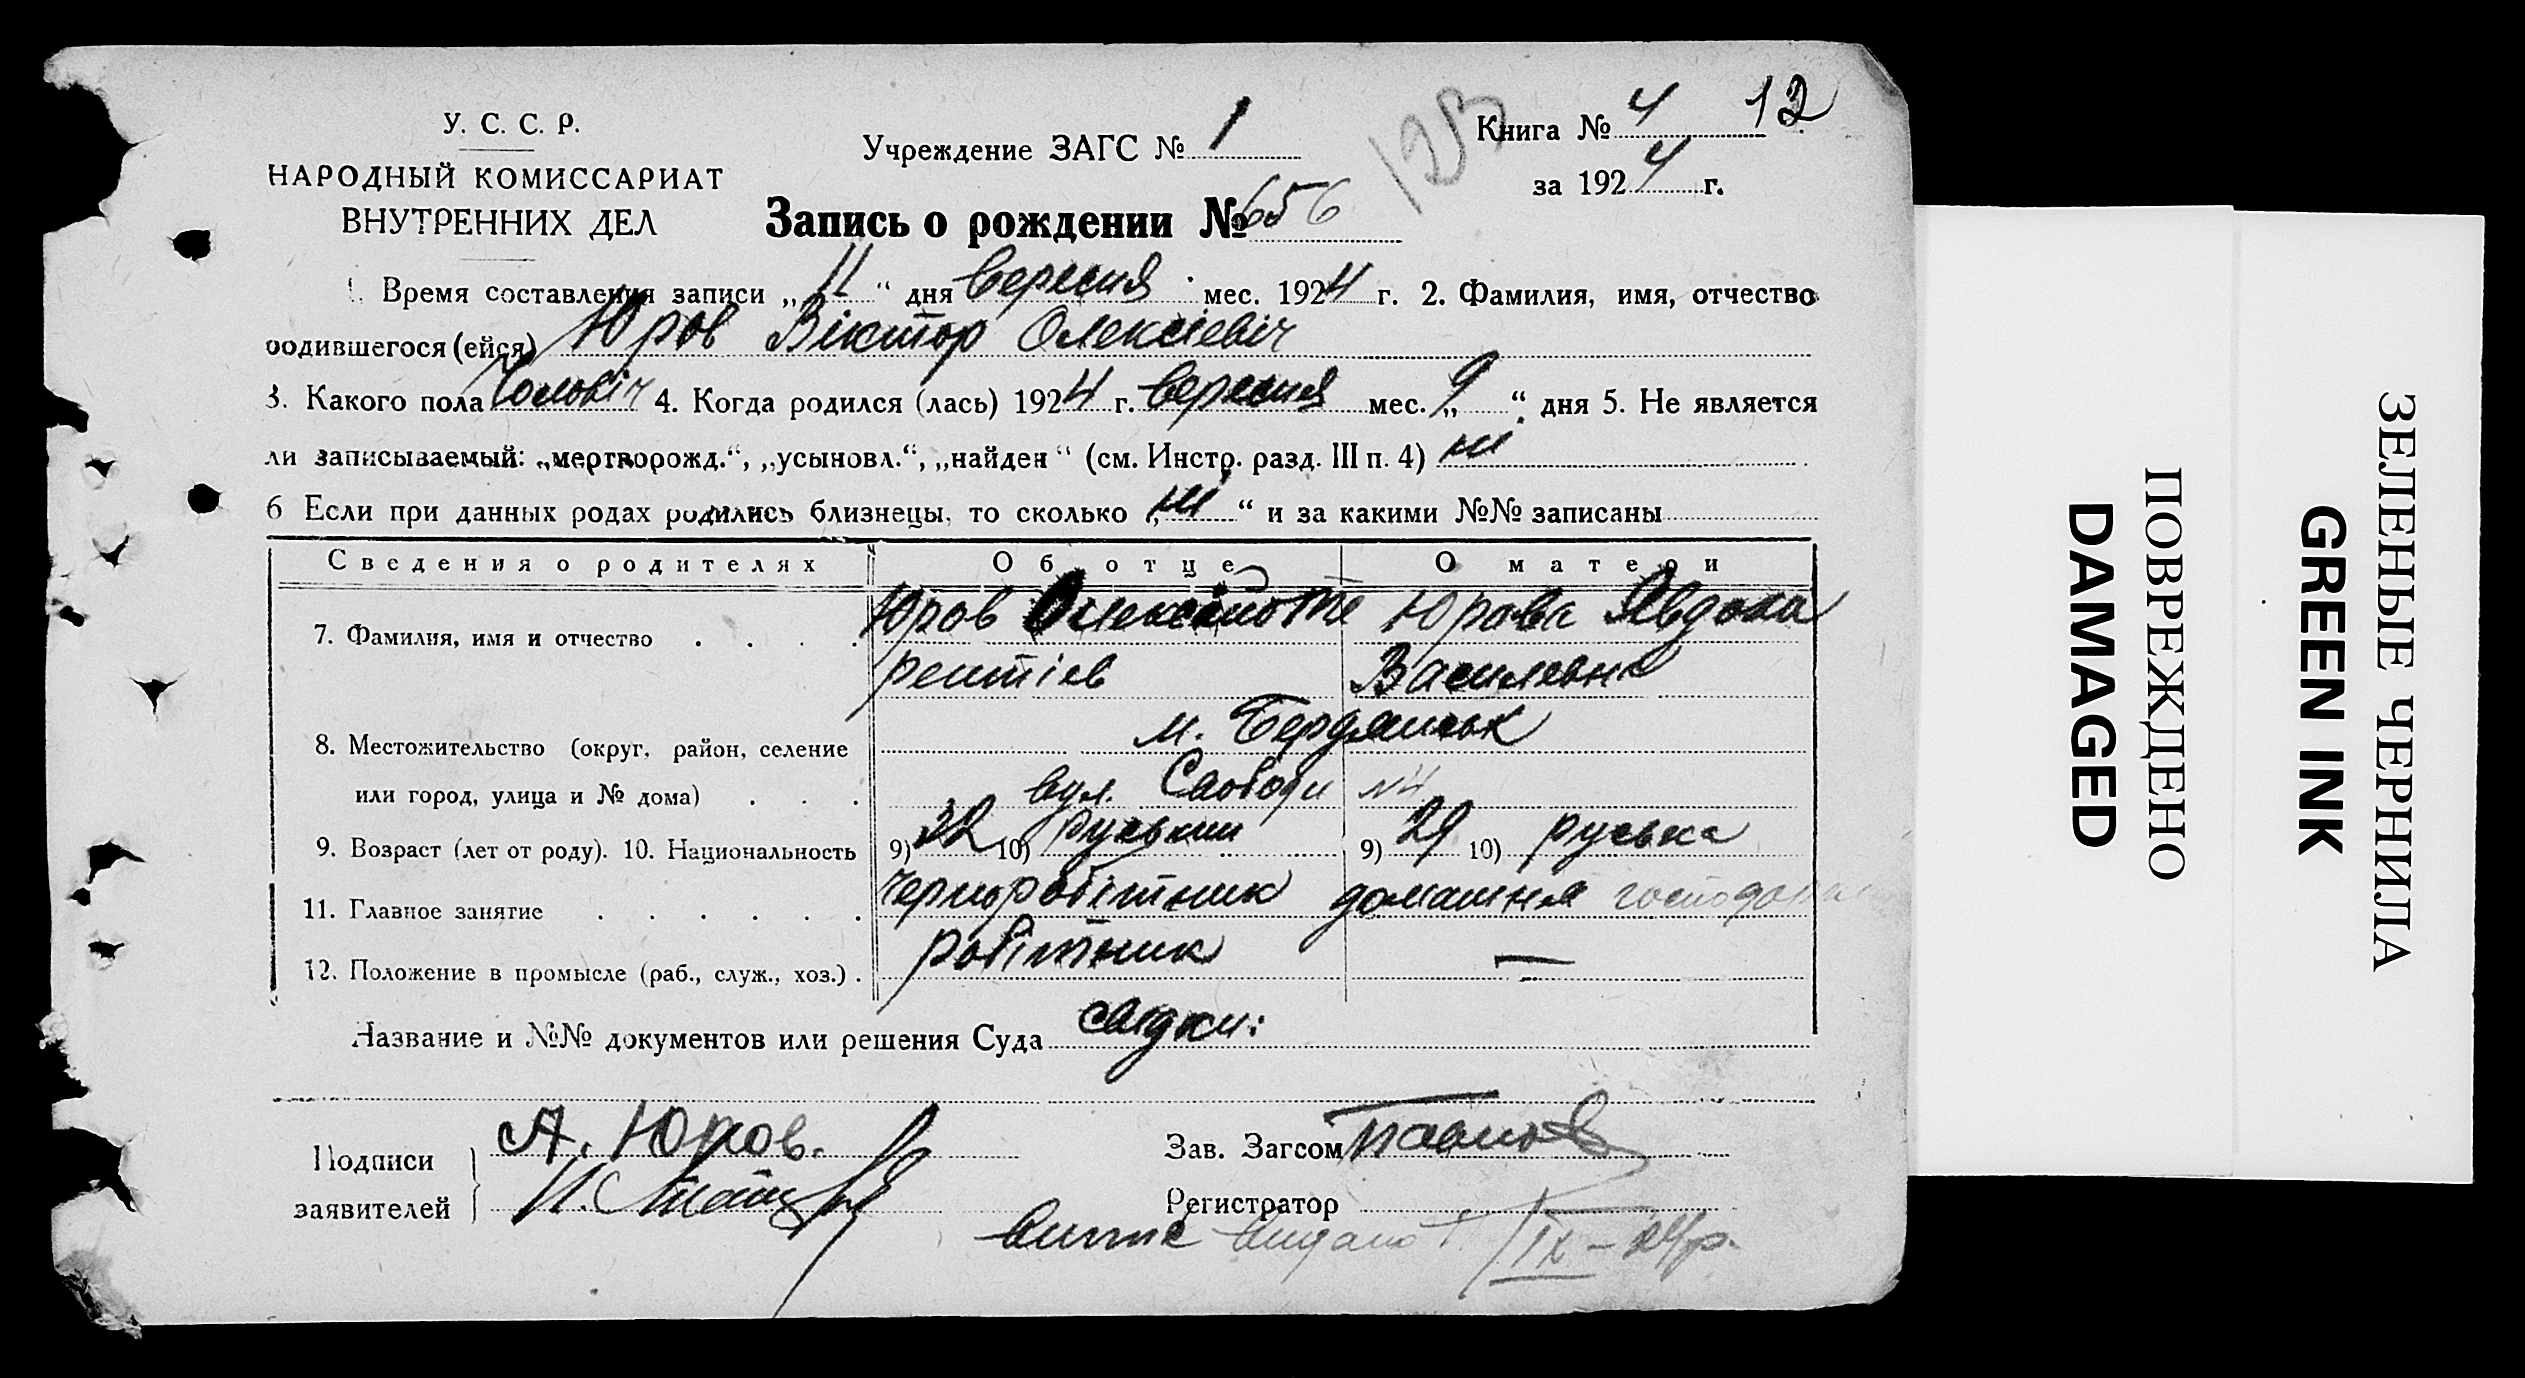 У. С. С. Р.
НАРОДНЫЙ КОМИССАРИАТ
ВНУТРЕННИХ ДЕЛ
Учреждение ЗАГС № 1
Книга № 4 12
за 1924 г.
Запись о рождении № 656
1. Время составления записи „11“ дня вересня мес. 1924 г. 2. Фамилия, имя, отчество
родившегося (ейся) Юров Віктор Олексієвіч
3. Какого пола Чоловіч 4. Когда родился (лась) 1924 г. вересня мес. „9“ дня 5. Не является
ли записываемый: „мертворожд.“, „усыновл.“, „найден“ (см. Инстр. разд. III п. 4) ні
6 Если при данных родах родились близнецы, то сколько „ні“ и за какими №№ записаны
Сведения о родителях Об отце О матери
7. Фамилия, имя и отчество Юров Олексій Те Юрова Явдоха
рентіев Василевна
8. Местожительство (округ, район, селение м. Бердянськ
или город, улица и № дома) вул. Свободи №4
9. Возраст (лет от роду). 10. Национальность 9) 32 10) руський 9) 29 10) руська
11. Главное занятие Чернорабітник домашня господарка
12. Положение в промысле (раб., служ., хоз.) робітник —
Название и №№ документов или решения Суда свідки:
Подписи А. Юров. Зав. Загсом
заявителей Регистратор
видано IX – 24 р.
ПОВРЕЖДЕНО
DAMAGED
ЗЕЛЕНЫЕ ЧЕРНИЛА
GREEN INK